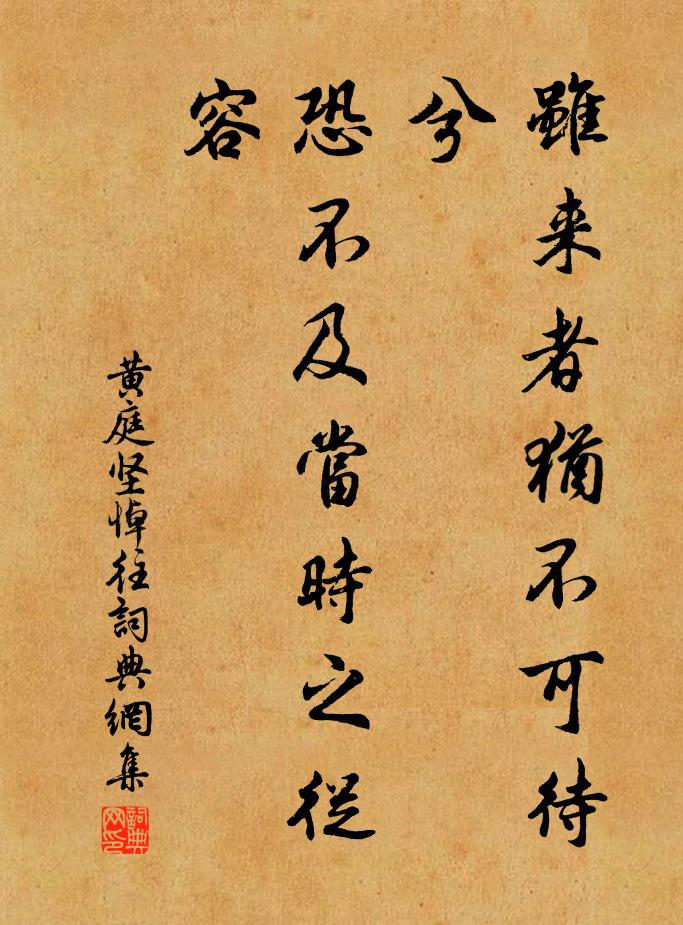 雖来者猶不可待
兮
恐不及當時之從
容
黄庭坚悼往詞典網集
詞典网印